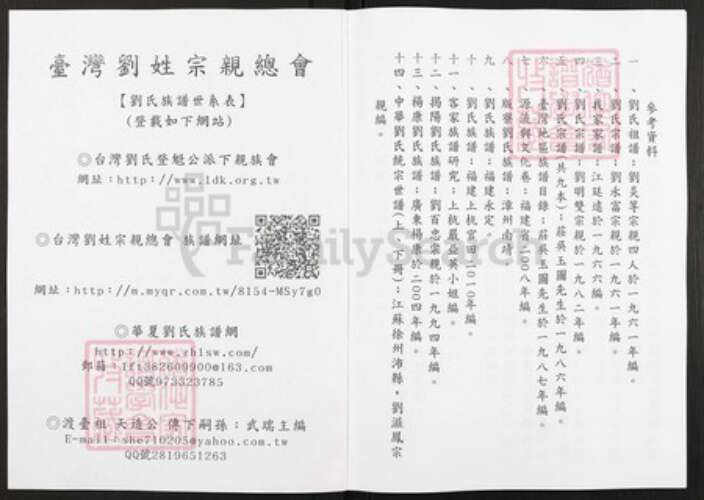 臺灣劉姓宗親總會
【劉氏族譜世系表】
(登載如下網站)
◎台灣劉氏登魁公派下親族會
網址：http://www.ldk.org.tw
◎台灣劉姓宗親總會 族譜網址
網址：http://m.myqr.com.tw/8154-MSy7g0
◎華夏劉氏族譜網
http://www.zhlsw.com/
郵箱：lft382609900@163.com
QQ號973323785
◎渡臺祖 天造公 傳下嗣孫：武瑞主編
E-mail：she710205@yahoo.com.tw
QQ號2819651263
參考資料
一、劉氏祖譜：劉炎等宗親四人於一九六一年編。
二、劉氏宗譜：劉永富宗親於一九六一年編。
三、我家家譜：江廷遠於一九六六編。
四、劉氏宗譜：劉明雙宗親於一九八二年編。
五、劉氏宗譜(共九本)：莊吳玉圖先生於一九八六年編。
六、臺灣地區族譜目錄：莊吳玉圖先生於一九八七年編。
七、源流與文化卷：福建省二00八年編。
八、版寮劉氏族譜：漳州南靖。
九、劉氏族譜：福建永定。
十、劉氏族譜：福建上杭官田二0一0年編。
十一、客家族譜研究：上杭嚴亞英小姐編。
十二、揭陽劉氏族譜：劉百忠宗親於一九九四年編。
十三、楊康劉氏族譜：廣東楊康於二00四年編。
十四、中華劉氏統宗世譜(上、下冊)：江蘇徐州沛縣，劉滋鳳宗
親編。
FamilySearch